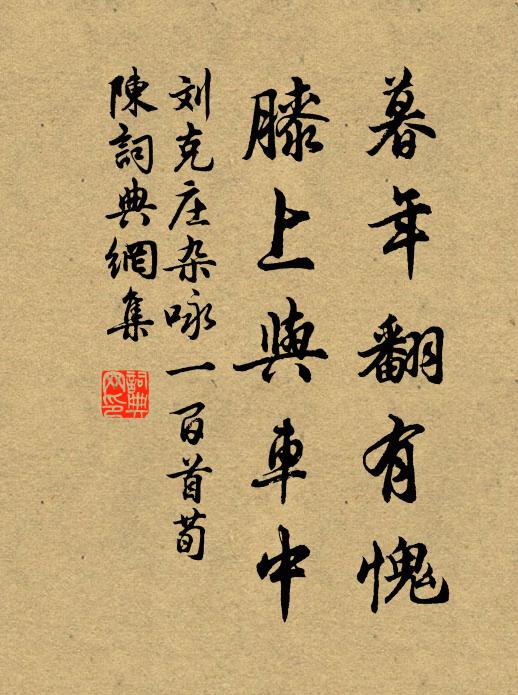 暮年翻有愧
膝上與車中
刘克庄杂咏一百首荀
陳詞典網集
詞典网印